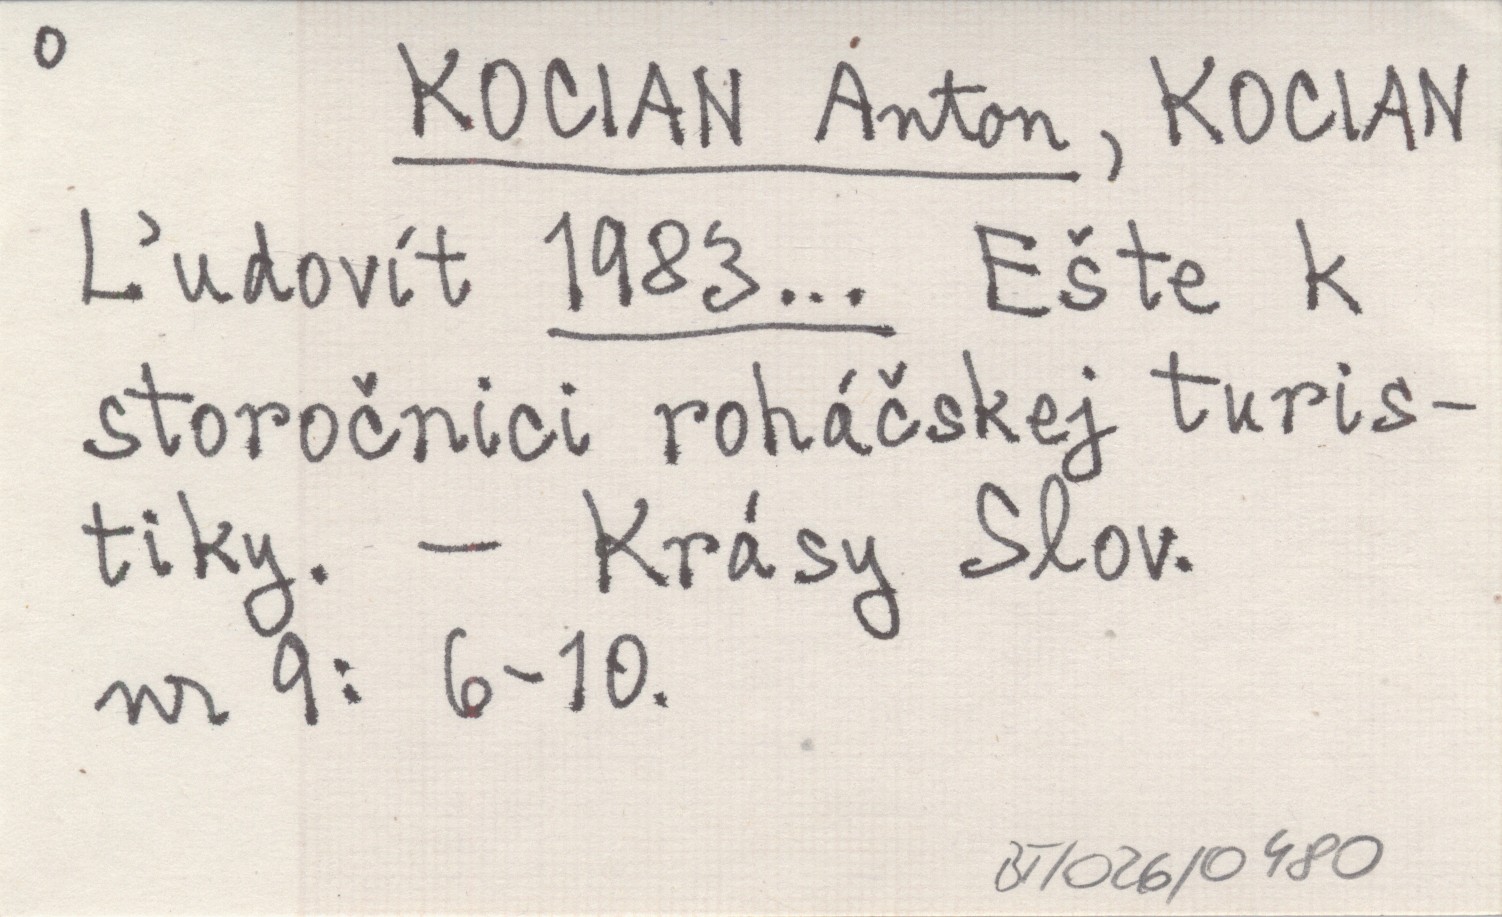 o
KOCIAN Anton, KOCIAN
Ľudovít 1983... Ešte k
storočnici roháčskej turis-
tiky. – Krásy Slov.
nr 9: 6-10.
BT/026/0480